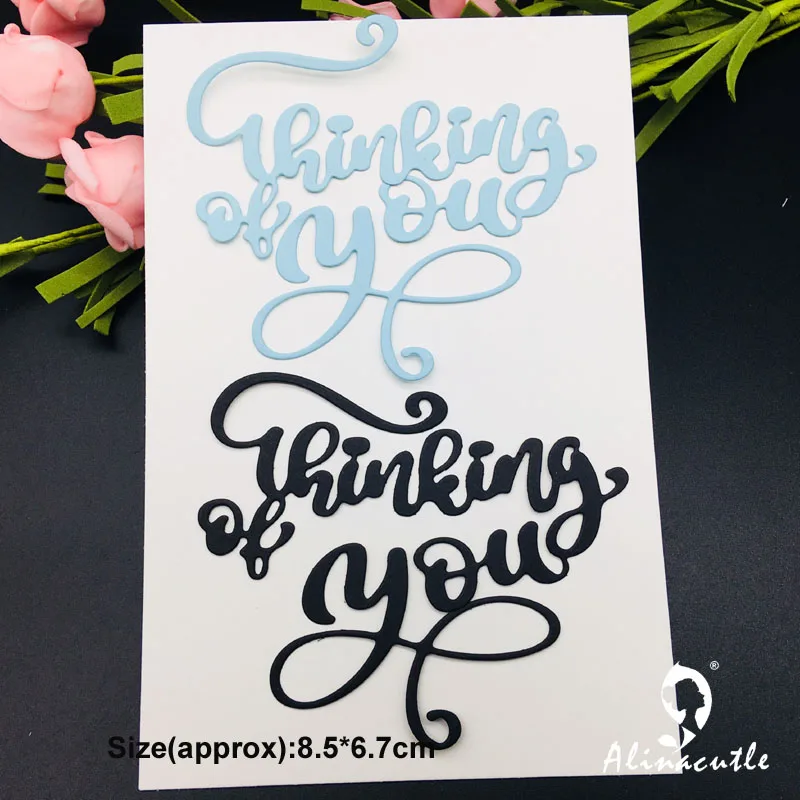 thinking
of you
thinking
of you
Size(approx):8.5*6.7cm
®
Alinacutle